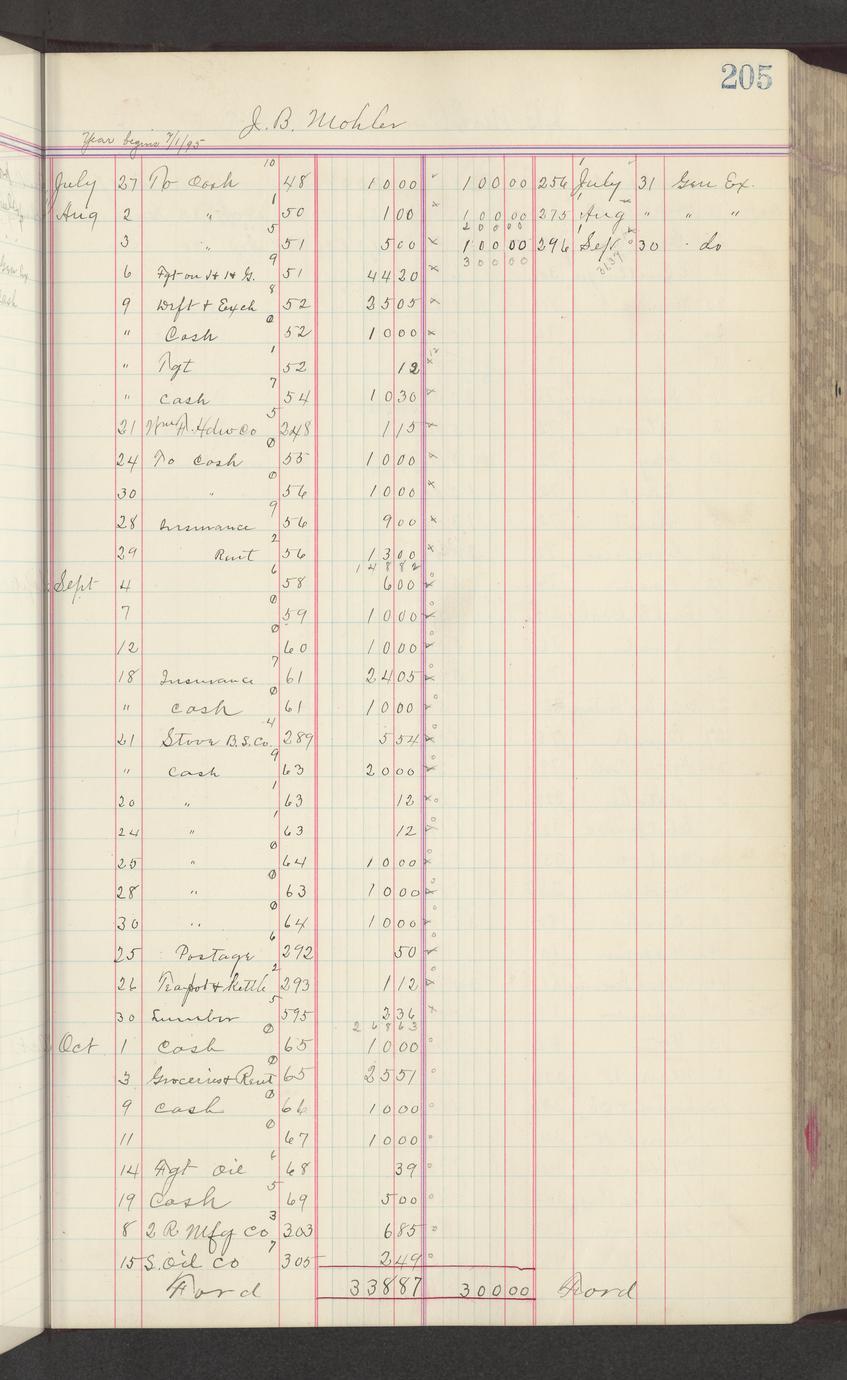 205
J. B. Mohler
Year begins 7/1/95
July 27 To Cash 10 48 10 00 100 00 256 July 31 Gen Ex.
Aug 2 " 1 50 1 00 100 00 275 Aug " " "
200 00
3 " 5 51 5 00 100 00 296 Sept 30 do
300 00
3139
6 Fgt on H H G. 9 51 44 20
9 Drft & Exch 8 52 25 05
" Cash 0 52 10 00
" Fgt 1 52 12
" Cash 7 54 10 30
21 Hdw Co 5 248 1 15
24 To Cash 0 55 10 00
30 " 0 56 10 00
28 Insurance 9 56 9 00
29 Rent 2 56 13 00
148 82
Sept 4 6 58 6 00
7 0 59 10 00
12 0 60 10 00
18 Insurance 7 61 24 05
" Cash 0 61 10 00
21 Stove B.S. Co. 4 289 5 54
" Cash 9 63 20 00
20 " 1 63 12
24 " 1 63 12
25 " 0 64 10 00
28 " 0 63 10 00
30 " 0 64 10 00
25 Postage 6 292 50
26 Teapot & Kettle 2 293 1 12
30 Lumber 5 595 2 36
268 63
Oct 1 Cash 0 65 10 00
3 Groceries & Rent 0 65 25 51
9 Cash 0 66 10 00
11 0 67 10 00
14 Fgt Oil 6 68 39
19 Cash 5 69 5 00
8 2 R Mfg Co 3 303 6 85
15 S. Oil Co 7 305 2 49
Ford 338 87 300 00 Ford